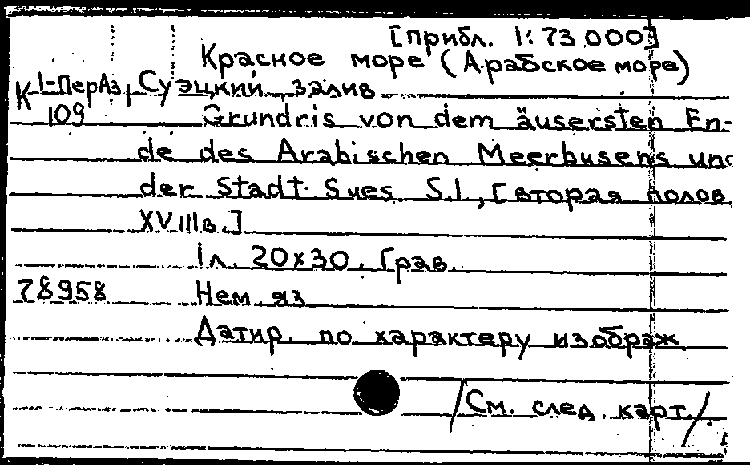 [прибл. 1:73.000]
Красное море (Арабское море)
К 1-ПерАз, Суэцкий залив
109 Grundris von dem äusersten En-
de des Arabischen Meerbusens und
der Stadt Sues S.l., [вторая полов.
XVIIIв.]
1л. 20x30. Грав.
78958 Нем. яз
Датир. по характеру изображ
/См. след. карт./